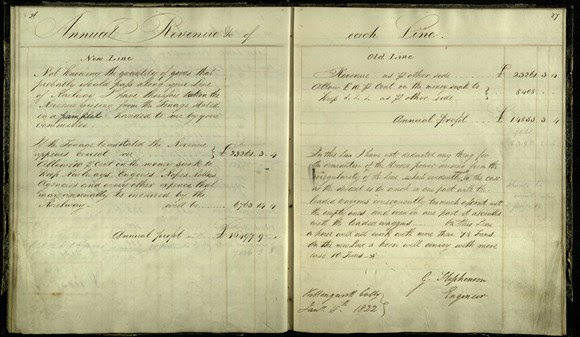 26
Annual Revenue &c of
New Line
Not knowing the quantity of goods that
probably would pass along your Line
of Railway I have therefore taken the
Revenue arising from the Tonage stated
in a pamplet handed to me by your
Committee
If the Tonage be as stated the Revenue
appears correct viz £ 23261.3.4
Allow 10 P Cent on the money sunk to
Keep Railways, Engines, Ropes,
Agencies and every other expence that
may annually be incurred by the
Railway will be 6763.14.4
Annual profit £ 16497.9
27
each Line
Old Line
Revenue as P other side £ 23261.3.4
Allow £10 P Cent on the money sunk to
Keep &c &c &c as P other side 8408
Annual profit £ 14853.3.4
In this Line I have not estimated any thing for
the consumption of the Horses power arising from the
irregularity of the Line, which undoubtly is the case
as the descent is too much in one part with the
loaded waggons consequently too much ascent with
the empty ones and even in one part it ascends
with the loaded waggons On this Line
a horse will not work with more than 7½ Tons.
On the new Line a horse will convey with more
ease 10 Tons
G. Stephenson
Engineer
Killingworth Colly
Jany 1822